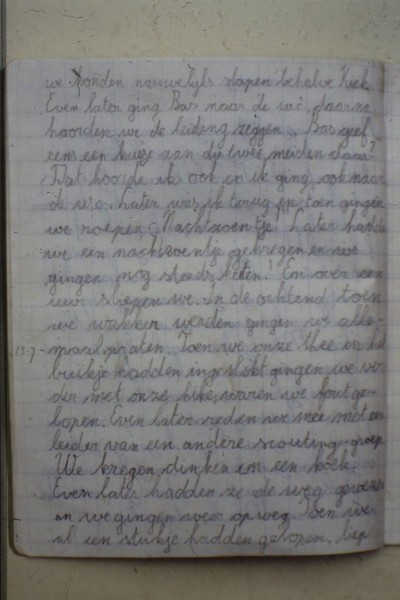 we konden nouwelyks slapen behalve Kick.
Even later ging Bas naar de w.c. daarna
hoorden we de leiding zeggen: Bas geef
eens een kusje aan die twee meiden daar?
Dat hoorde ik ook en ik ging ook naar
de w.c. Later was ik terug en toen gingen
we roepen: Nachtzoentje! Later hadden
we een nachtzoentje gekregen en we
gingen nog steeds keten! En over een
uur sliepen we. In de ochtend toen
we wakker werden gingen we alle-
13-7- maal praten. Toen we onze thee in het
buikje hadden ingeslikt gingen we ver
der met onze hike, waren we fout ge-
lopen. Even later reden we mee met een
leider van een andere scouting-groep
We kregen drinken en een koek.
Even later hadden ze de weg gewezen
en we gingen weer op weg. Toen we
al een stukje hadden gelopen, liep